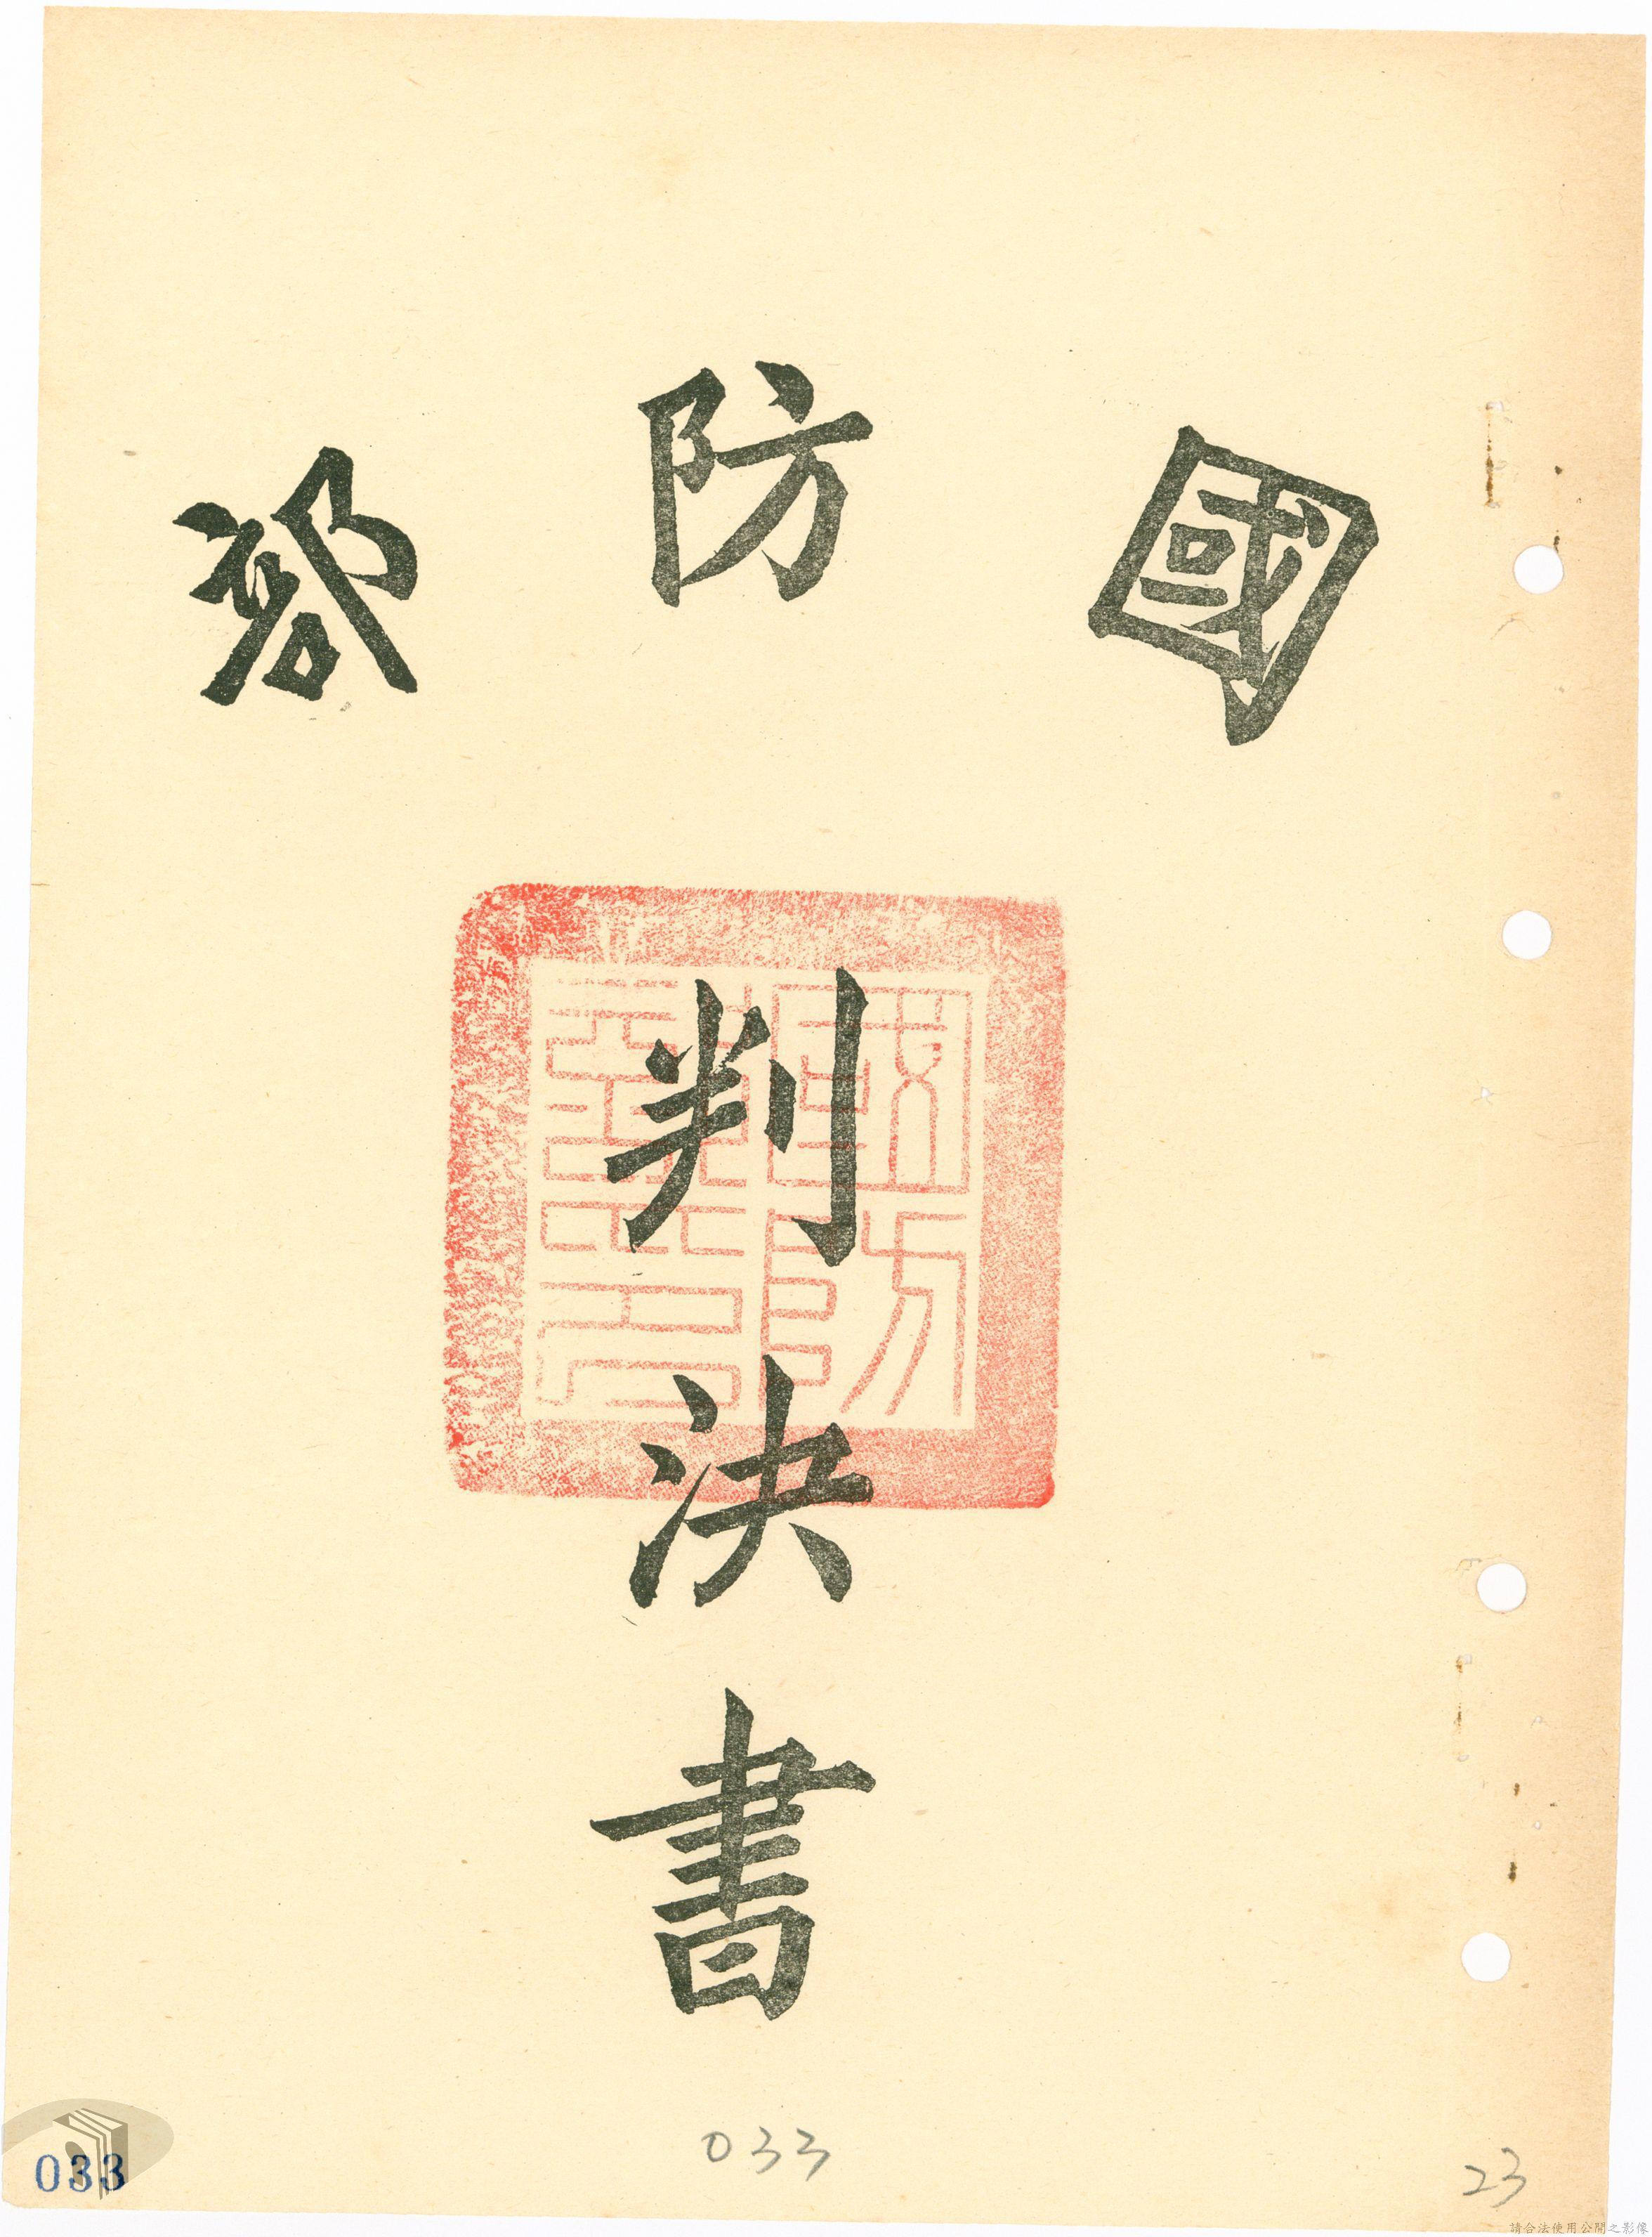 國防部
判決書
國防部印
033
033
23
請合法使用公開之影像